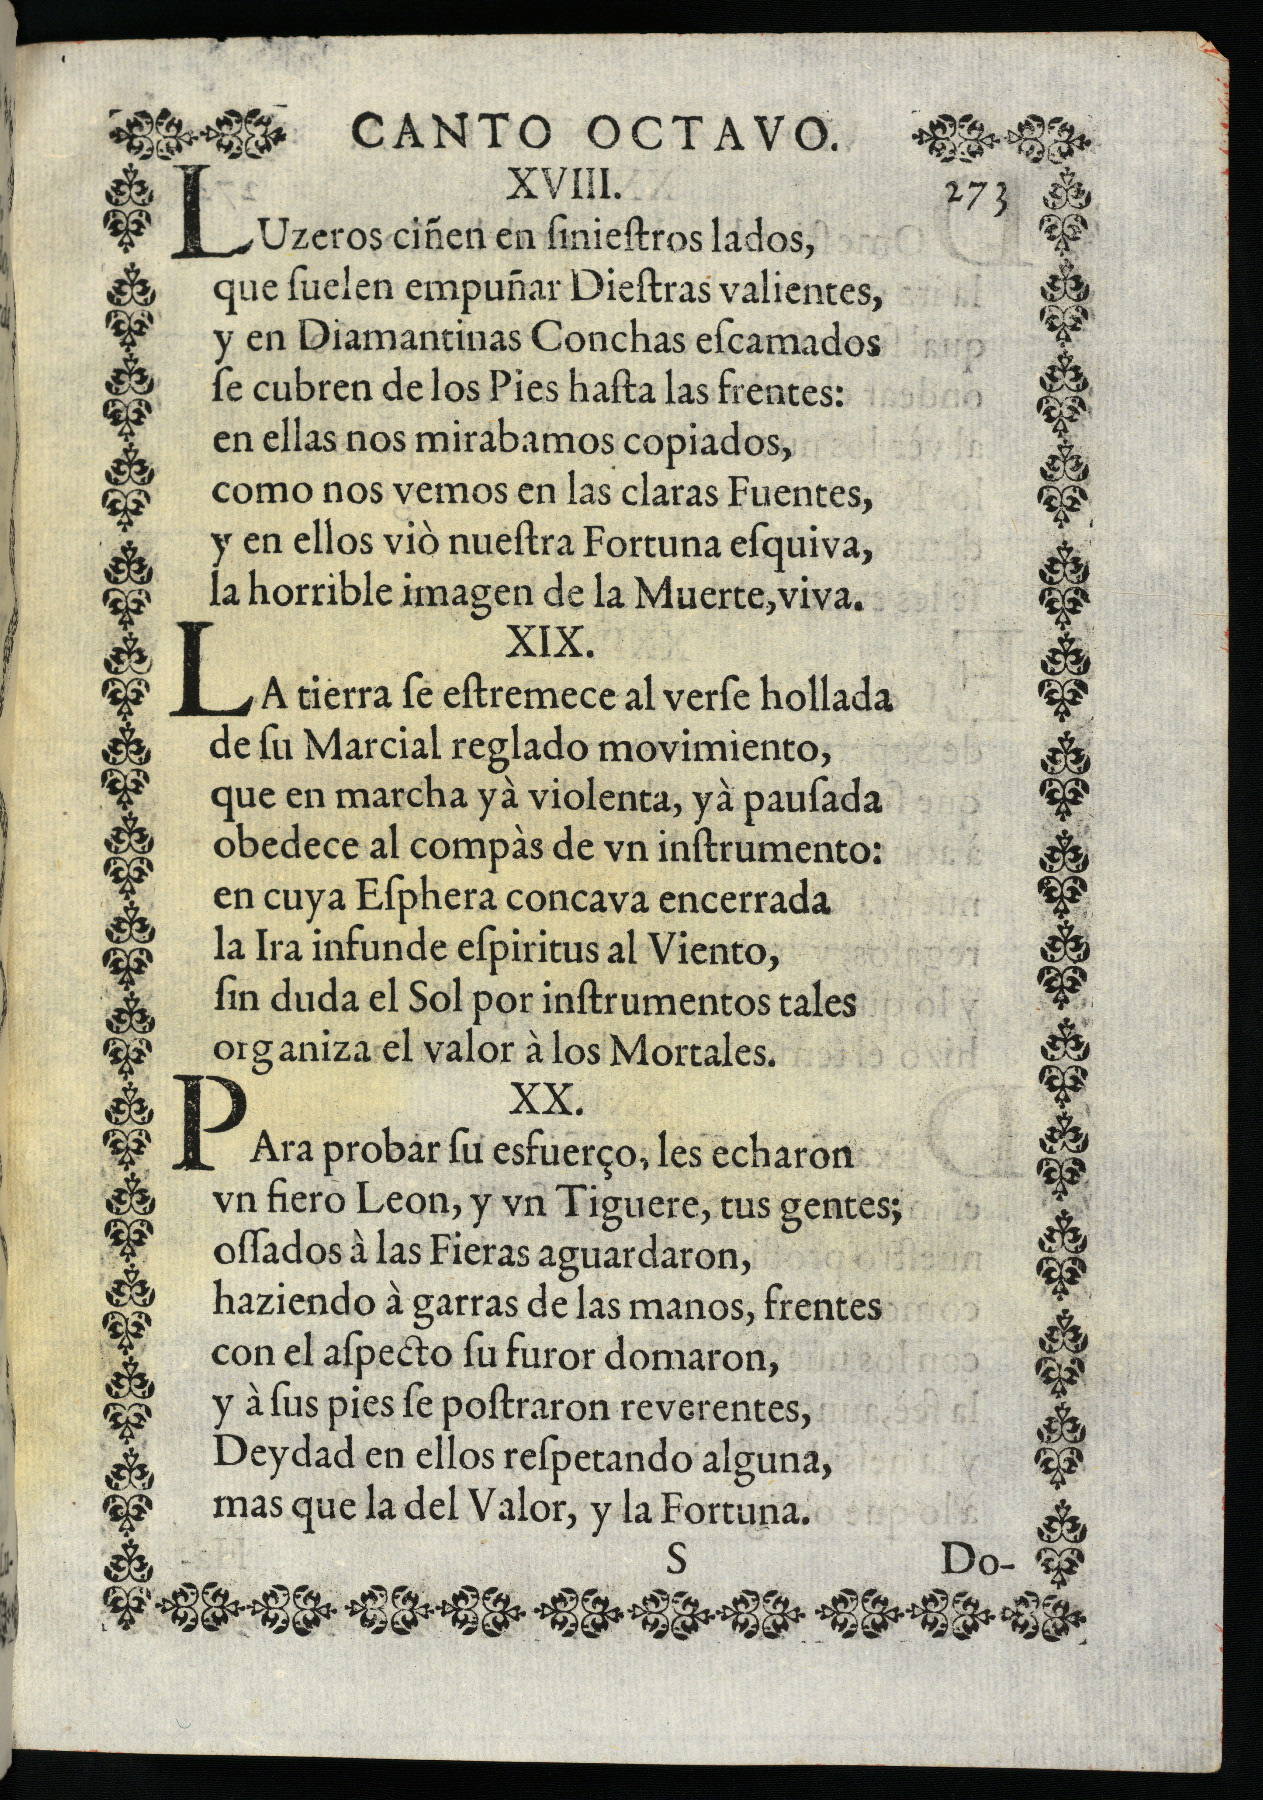 CANTO OCTAVO.
XVIII.
273
LUzeros ciñen en ſinieſtros lados,
que ſuelen empuñar Dieſtras valientes,
y en Diamantinas Conchas eſcamados
ſe cubren de los Pies haſta las frentes:
en ellas nos mirabamos copiados,
como nos vemos en las claras Fuentes,
y en ellos viò nueſtra Fortuna eſquiva,
la horrible imagen de la Muerte,viva.
XIX.
LA tierra ſe eſtremece al verſe hollada
de ſu Marcial reglado movimiento,
que en marcha yà violenta, yà pauſada
obedece al compàs de vn inſtrumento:
en cuya Eſphera concava encerrada
la Ira infunde eſpiritus al Viento,
ſin duda el Sol por inſtrumentos tales
organiza el valor à los Mortales.
XX.
PAra probar ſu esfuerço, les echaron
vn fiero Leon, y vn Tiguere, tus gentes;
oſſados à las Fieras aguardaron,
haziendo à garras de las manos, frentes
con el aſpecto ſu furor domaron,
y à ſus pies ſe poſtraron reverentes,
Deydad en ellos reſpetando alguna,
mas que la del Valor, y la Fortuna.
S
Do-